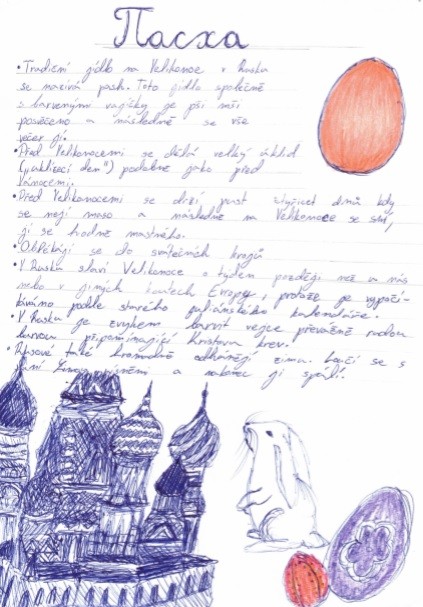 Пасха
• Tradiční jídlo na Velikonoce v Rusku
se nazývá pasch. Toto jídlo společně
s barvenými vajíčky je při mši
posvěceno a následně se vše
večer jí.
• Před Velikonocemi se dělá velký úklid
("uklízecí den") podobně jako před
Vánocemi.
• Před Velikonocemi se drží půst čtyřicet dnů, kdy
se nejí maso a následně na Velikonoce se
jí se hodně mastného.
• Oblékají se do svátečních krojů
• V Rusku slaví Velikonoce o týden později než u nás
nebo v jiných koutech Evropy, protože je vypočí-
távámo podle starého juliánského kalendáře.
• V Rusku je zvykem barvit vejce převážně rudou
barvou připomínající Kristovu krev.
• Rusové také hromadně odhánějí zimu. Loučí se s
ní písněmi a nakonec ji spálí.